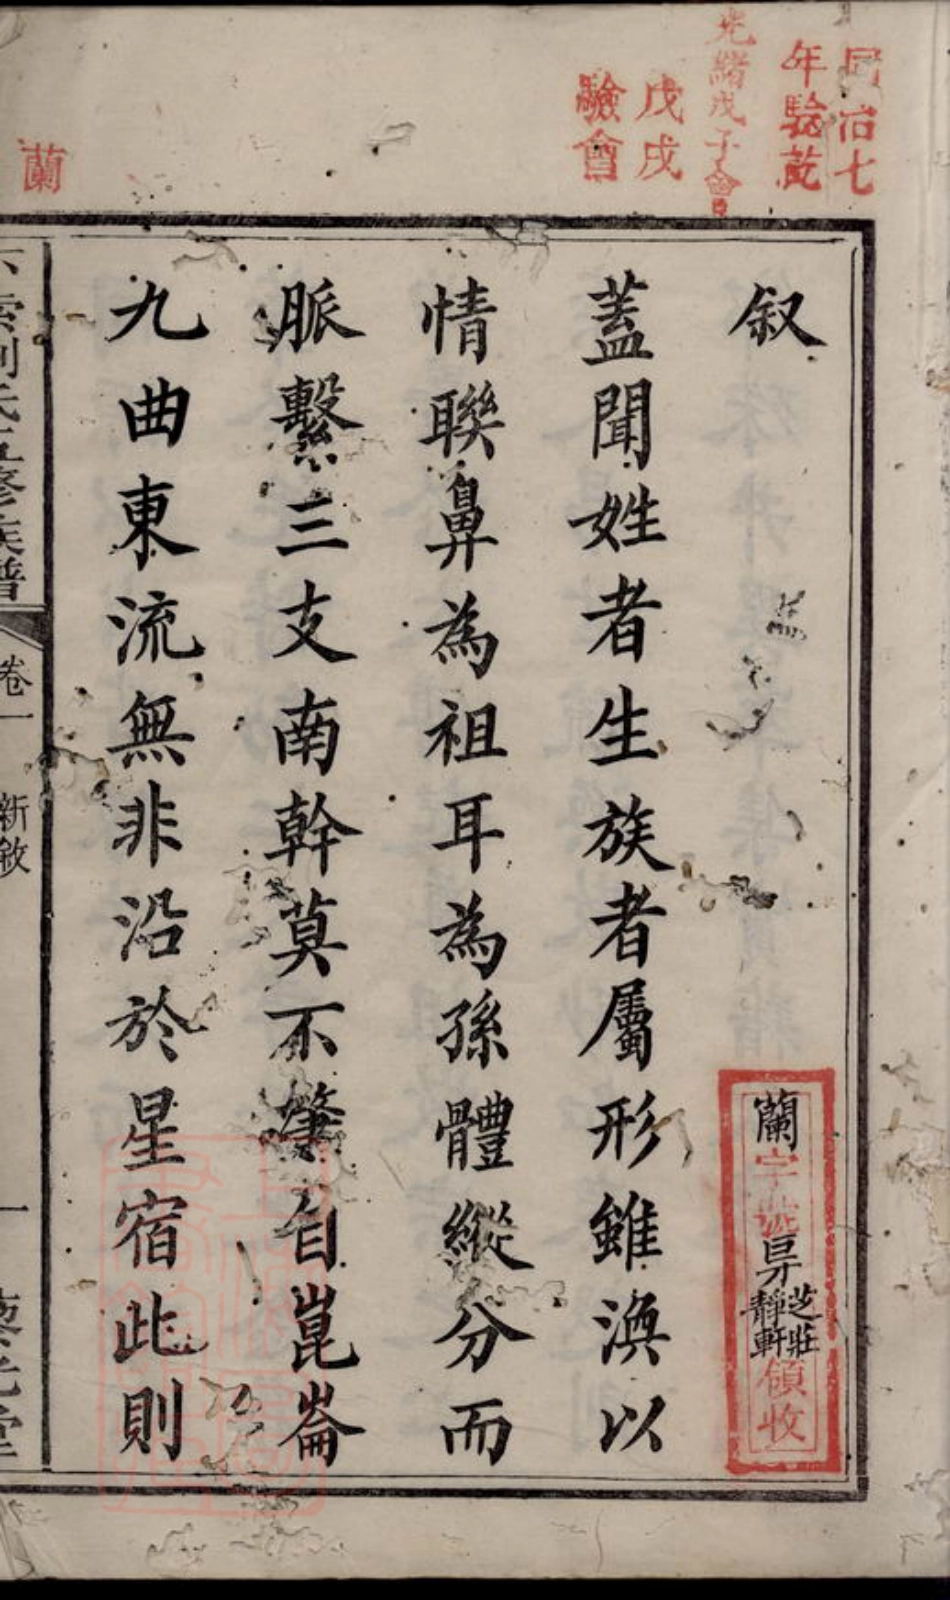 同治七
年驗訖
光緒戊子會
戊戌
驗會
蘭
叙
蓋聞姓者生族者屬形雖渙以
情聯鼻為祖耳為孫體縱分而
脈繫三支南幹莫不肇自崑崙
九曲東流無非沿於星宿此則
蘭字號
芝莊
靜軒
領收
劉氏五修族譜
卷一
新敘
一